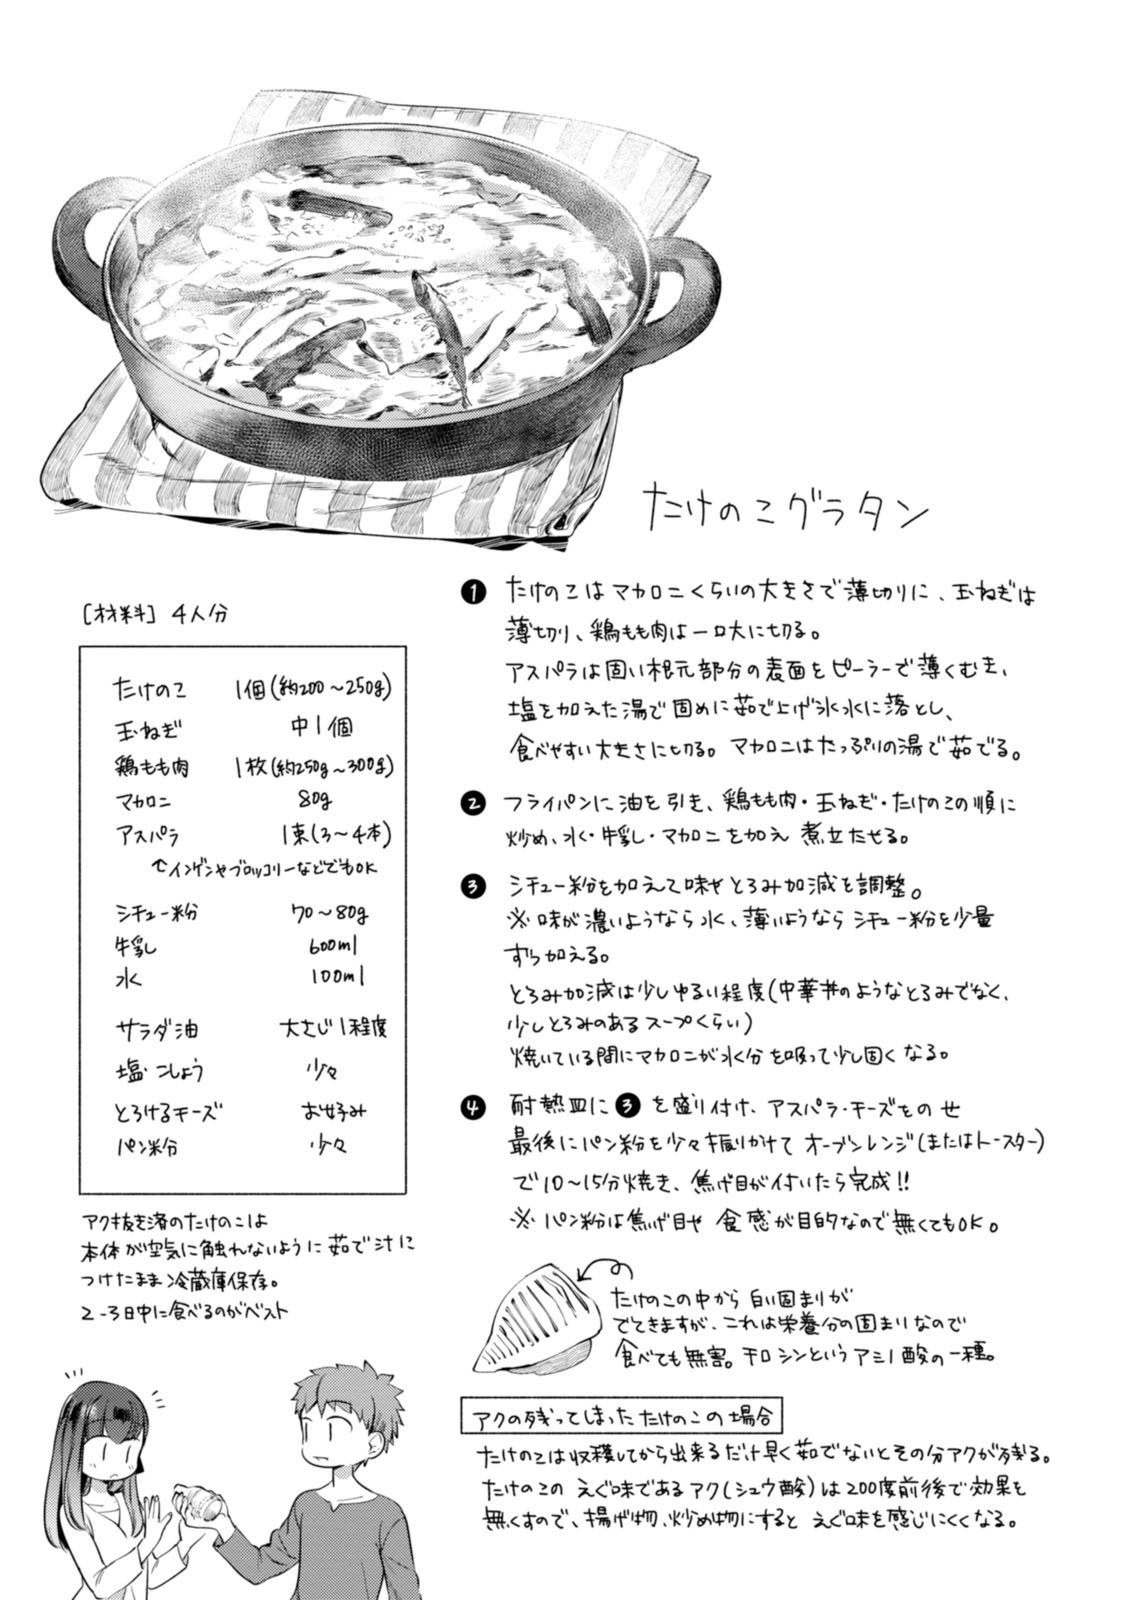 たけのこグラタン
[材料] 4人分
たけのこ 1個(約200～250g)
玉ねぎ 中1個
鶏もも肉 1枚(約250g～300g)
マカロニ 80g
アスパラ 1束(3～4本)
↑インゲンやブロッコリーなどでもOK
シチュー粉 70～80g
牛乳 600ml
水 100ml
サラダ油 大さじ1程度
塩・こしょう 少々
とろけるチーズ お好み
パン粉 少々
アク抜き済のたけのこは
本体が空気に触れないように茹で汁に
つけたまま冷蔵庫保存。
2-3日中に食べるのがベスト
❶ たけのこはマカロニくらいの大きさで薄切りに、玉ねぎは
薄切り、鶏もも肉は一口大に切る。
アスパラは固い根元部分の表面をピーラーで薄くむき、
塩を加えた湯で固めに茹で上げ氷水に落とし、
食べやすい大きさに切る。マカロニはたっぷりの湯で茹でる。
❷ フライパンに油を引き、鶏もも肉・玉ねぎ・たけのこの順に
炒め、水・牛乳・マカロニを加え 煮立たせる。
❸ シチュー粉を加えて味やとろみ加減を調整。
※味が濃いようなら水、薄いようならシチュー粉を少量
ずつ加える。
とろみ加減は少しゆるい程度(中華丼のようなとろみでなく、
少しとろみのあるスープくらい)
焼いている間にマカロニが水分を吸って少し固くなる。
❹ 耐熱皿に❸を盛り付け、アスパラ・チーズをのせ
最後にパン粉を少々振りかけてオーブンレンジ(またはトースター)
で10～15分焼き、焦げ目が付いたら完成!!
※パン粉は焦げ目や食感が目的なので無くてもOK。
たけのこの中から白い固まりが
でてきますが、これは栄養分の固まりなので
食べても無害。チロシンというアミノ酸の一種。
アクの残ってしまったたけのこの場合
たけのこは収穫してから出来るだけ早く茹でないとその分アクが残る。
たけのこの えぐ味であるアク(シュウ酸)は200度前後で効果を
無くすので、揚げ物、炒め物にすると えぐ味を感じにくくなる。